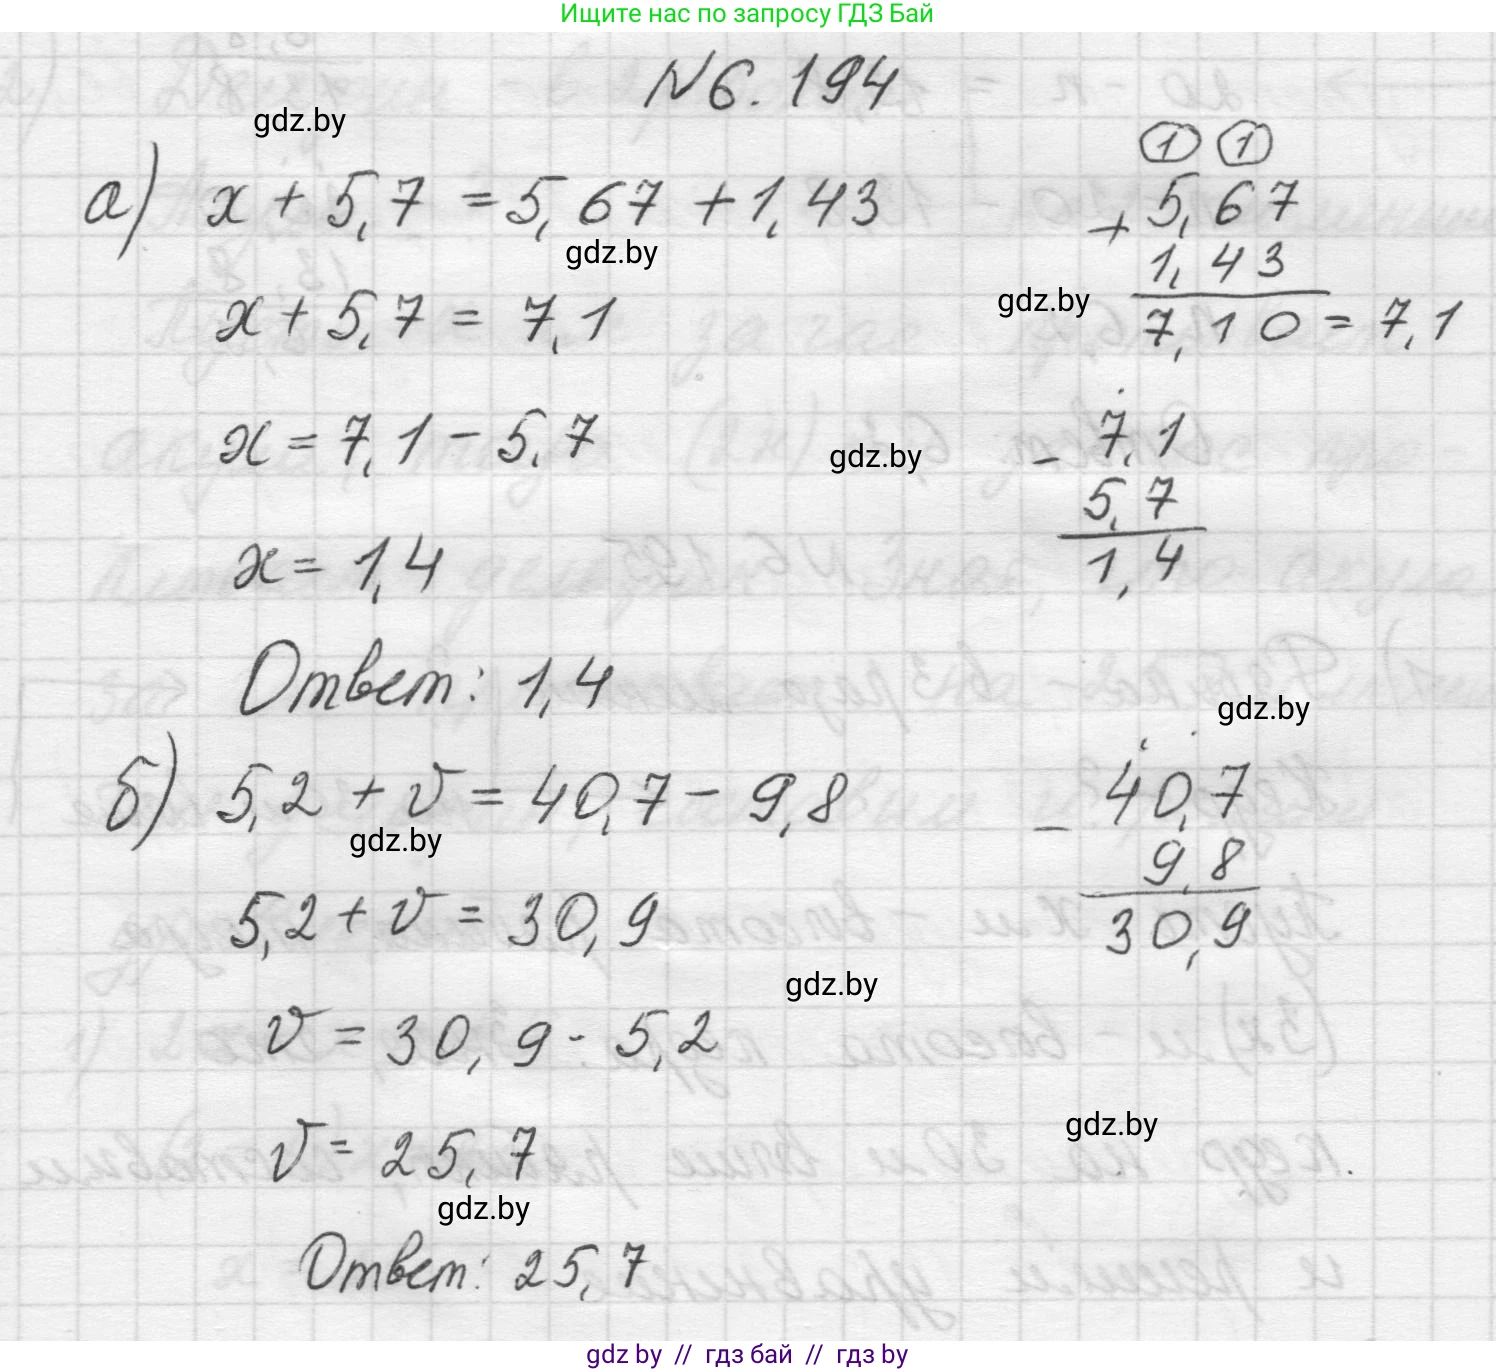 Ищите нас по запросу ГДЗ Бай
№6.194
gdz.by
а) x + 5,7 = 5,67 + 1,43
gdz.by
x + 5,7 = 7,1
x = 7,1 - 5,7
x = 1,4
Ответ: 1,4
1 1
+ 5,67
1,43
gdz.by
7,10 = 7,1
gdz.by
- 7,1
5,7
1,4
gdz.by
б) 5,2 + v = 40,7 - 9,8
gdz.by
5,2 + v = 30,9
gdz.by
v = 30,9 - 5,2
v = 25,7
gdz.by
Ответ: 25,7
- 40,7
9,8
30,9
gdz.by
gdz by // гдз бай // гдз by